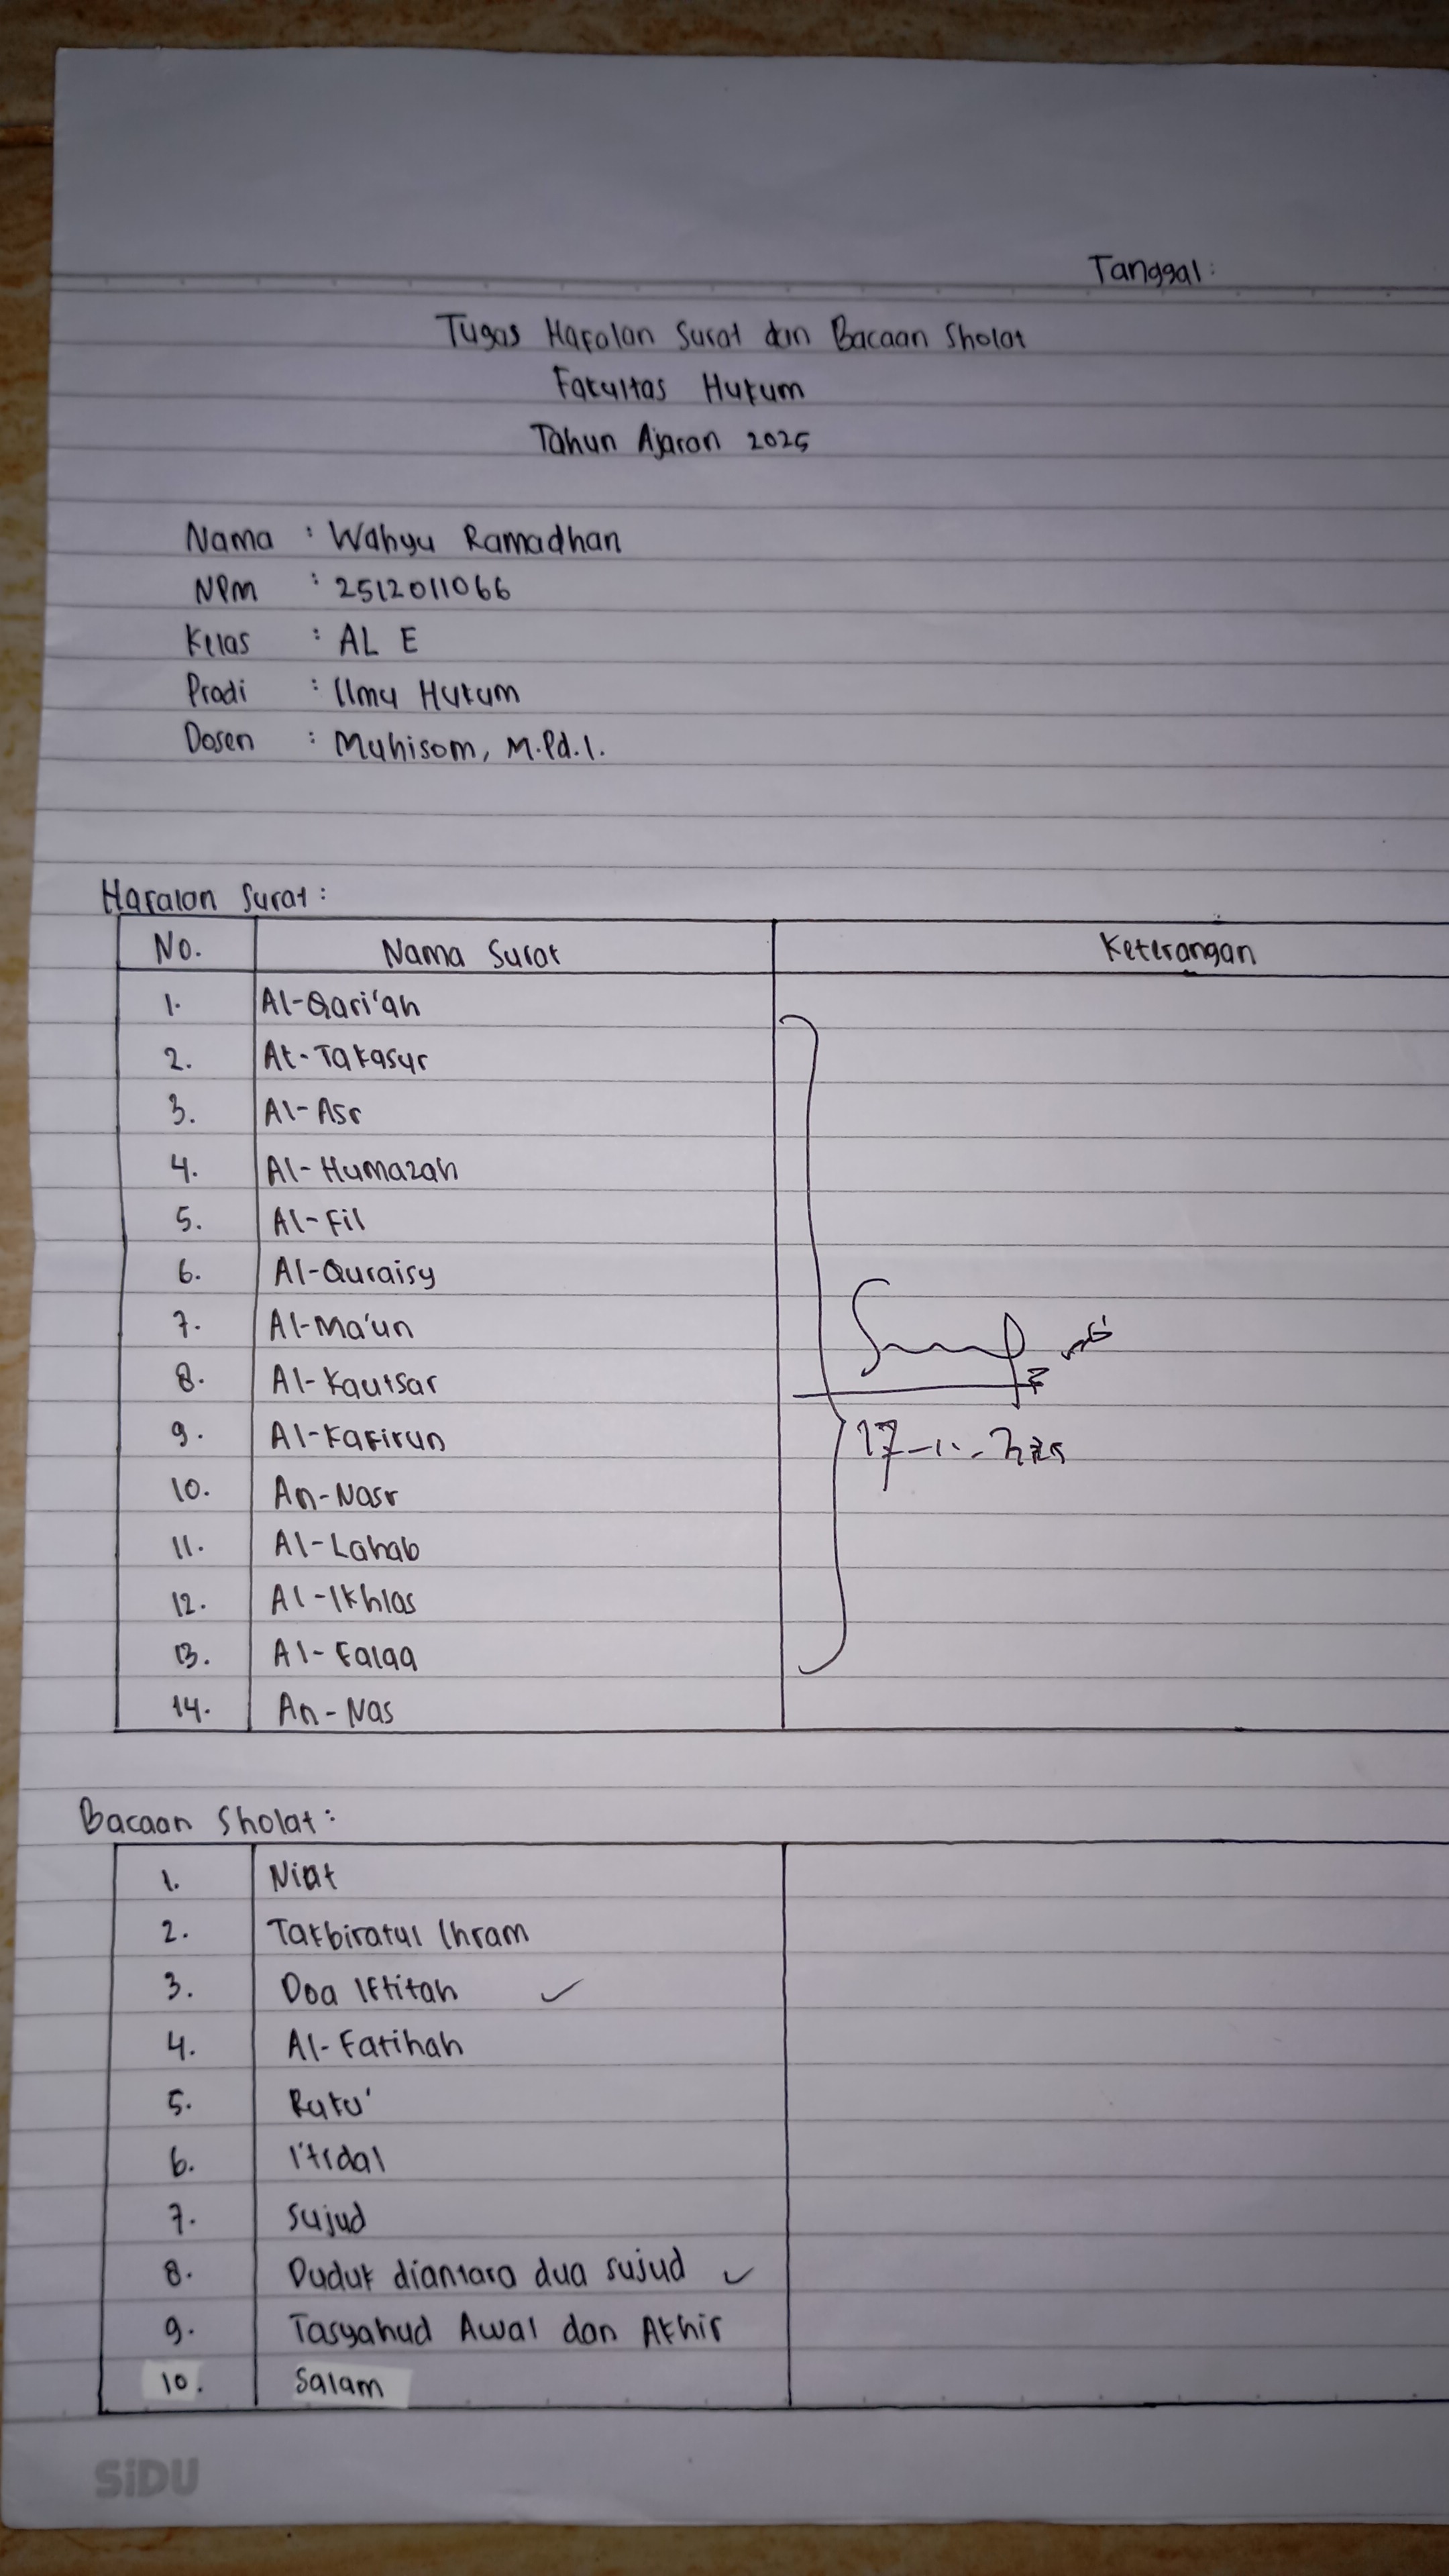 Tanggal:
Tugas Hafalan Surat dan Bacaan Sholat
Fakultas Hukum
Tahun Ajaran 2025
Nama : Wahyu Ramadhan
NPM : 2512011066
Kelas : AL E
Prodi : Ilmu Hukum
Dosen : Muhisom, M.Pd.I.
Hafalan Surat:
No. Nama Surat Keterangan
1. Al-Qari'ah
2. At-Takasur
3. Al-Asr
4. Al-Humazah
5. Al-Fil
6. Al-Quraisy
7. Al-Ma'un
8. Al-Kautsar
9. Al-Kafirun
10. An-Nasr
11. Al-Lahab
12. Al-Ikhlas
13. Al-Falaq
14. An-Nas
17
Bacaan Sholat:
1. Niat
2. Takbiratul Ihram
3. Doa Iftitah ✓
4. Al-Fatihah
5. Ruku'
6. I'tidal
7. Sujud
8. Duduk diantara dua sujud ✓
9. Tasyahud Awal dan Akhir
10. Salam
SiDU